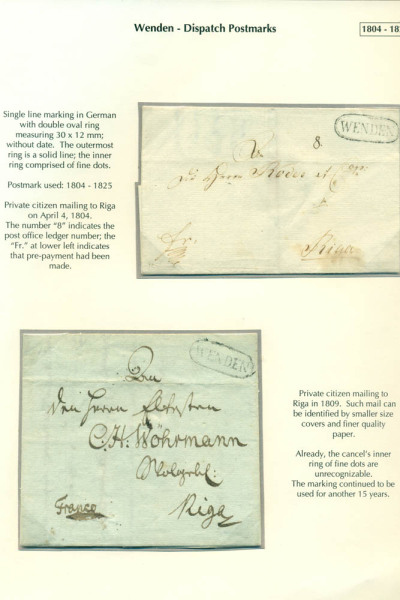 Wenden - Dispatch Postmarks
1804 - 182
Single line marking in German
with double oval ring
measuring 30 x 12 mm;
without date. The outermost
ring is a solid line; the inner
ring comprised of fine dots.
Postmark used: 1804 - 1825
Private citizen mailing to Riga
on April 4, 1804.
The number "8" indicates the
post office ledger number; the
"Fr." at lower left indicates
that pre-payment had been
made.
WENDEN
8.
Fr.
Riga
WENDEN
Den Herrn Eltesten
C. H. Wöhrmann
Franco
Riga
Private citizen mailing to
Riga in 1809. Such mail can
be identified by smaller size
covers and finer quality
paper.
Already, the cancel's inner
ring of fine dots are
unrecognizable.
The marking continued to be
used for another 15 years.